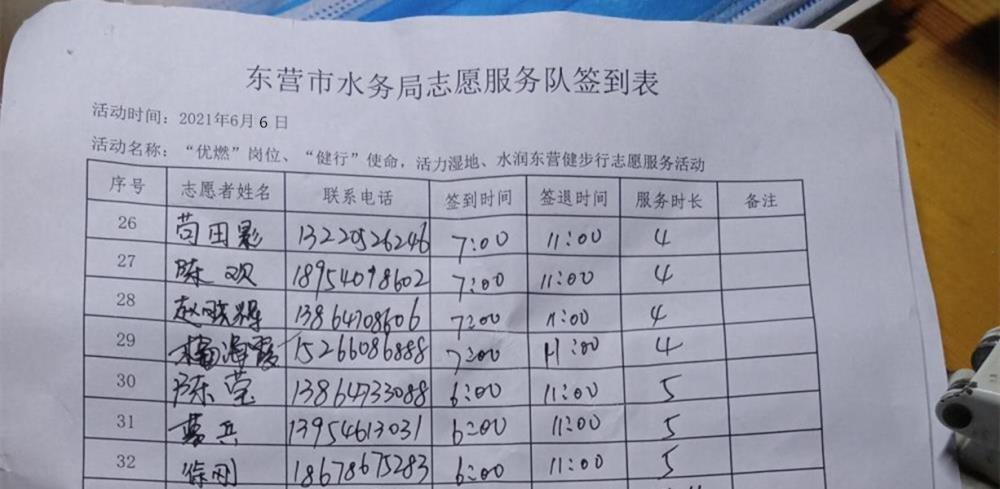 东营市水务局志愿服务队签到表
活动时间：2021年6月6日
活动名称：“优燃”岗位、“健行”使命，活力湿地、水润东营健步行志愿服务活动
序号 志愿者姓名 联系电话 签到时间 签退时间 服务时长 备注
26 苟田影 13220526246 7:00 11:00 4
27 陈欢 18954098602 7:00 11:00 4
28 赵晓辉 13864708606 7:00 11:00 4
29 杨海霞 15266086888 7:00 11:00 4
30 陈莹 13864733088 6:00 11:00 5
31 兵 13954613031 6:00 11:00 5
32 徐刚 18678675283 6:00 11:00 5